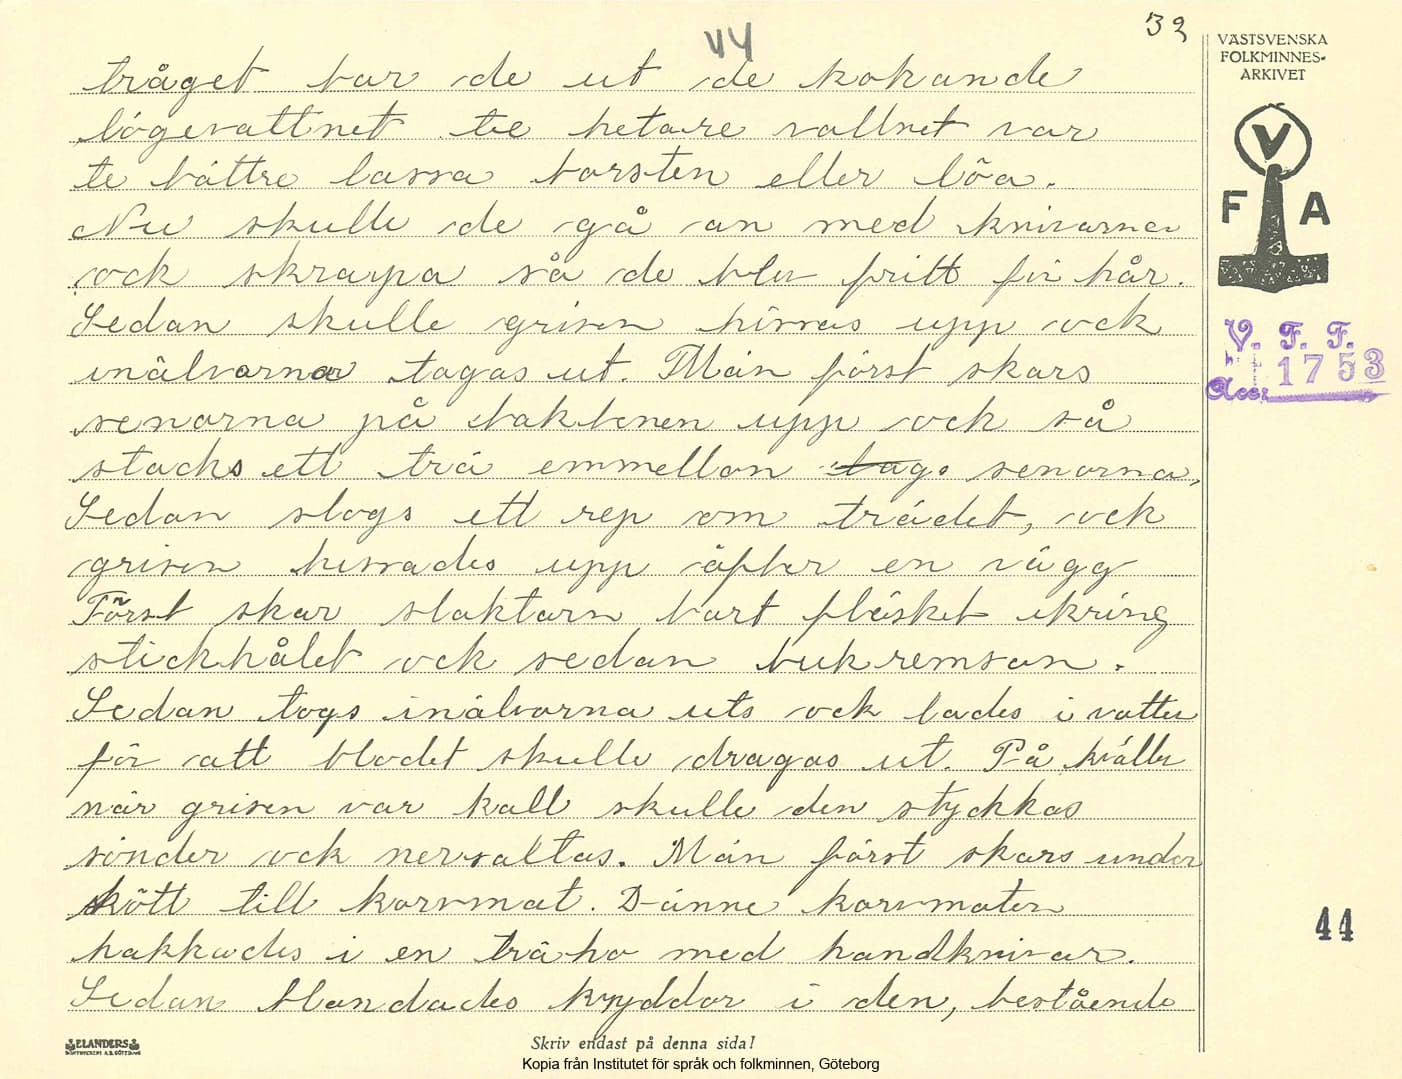 44
32
VÄSTSVENSKA
FOLKMINNES-
ARKIVET
V
F A
V. F. F.
Acc: 1753
tråget bar de ut de kokande
lögevattnet te hetare vattnet var
te bättre lassa borsten eller löa.
Nu skulle de gå an med knivarna
ock skrapa så de blev fritt för hår.
Sedan skulle grisen hissas upp ock
inälvorna tagas ut. Män först skars
senorna på bakbenen upp ock så
stacks ett trä emmellan tags senorna,
Sedan slogs ett rep om trädet, ock
grisen hissades upp äfter en vägg
Först skar slaktarn bort fläsket ikring
stickhålet ock sedan bukremsan.
Sedan togs inälvorna uts ock lades i vatten
för att blodet skulle dragas ut. På kvällen
när grisen var kall skulle den styckkas
sönder ock nersaltas. Män först skars undan
kött till korvmat. Dänne korvmaten
hakkades i en träho med handknivar.
Sedan blandades kryddor i den, bestående
44
ELANDERS
Skriv endast på denna sida!
Kopia från Institutet för språk och folkminnen, Göteborg